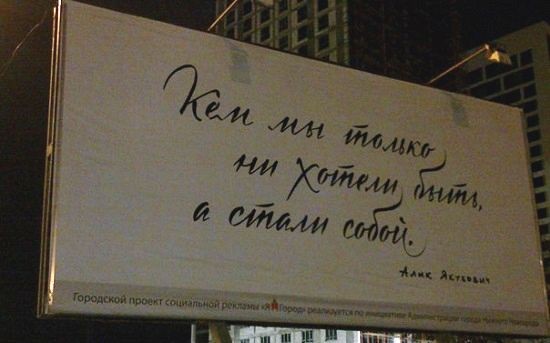 Кем мы только
ни хотели быть,
а стали собой.
Алик Якубович
Городской проект социальной рекламы «Я Город» реализуется по инициативе Администрации города Нижнего Новгорода